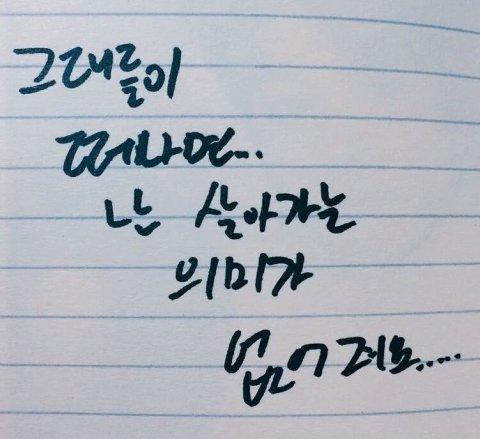 그대들이
떠나면...
난 살아가는
의미가
없어져요.....